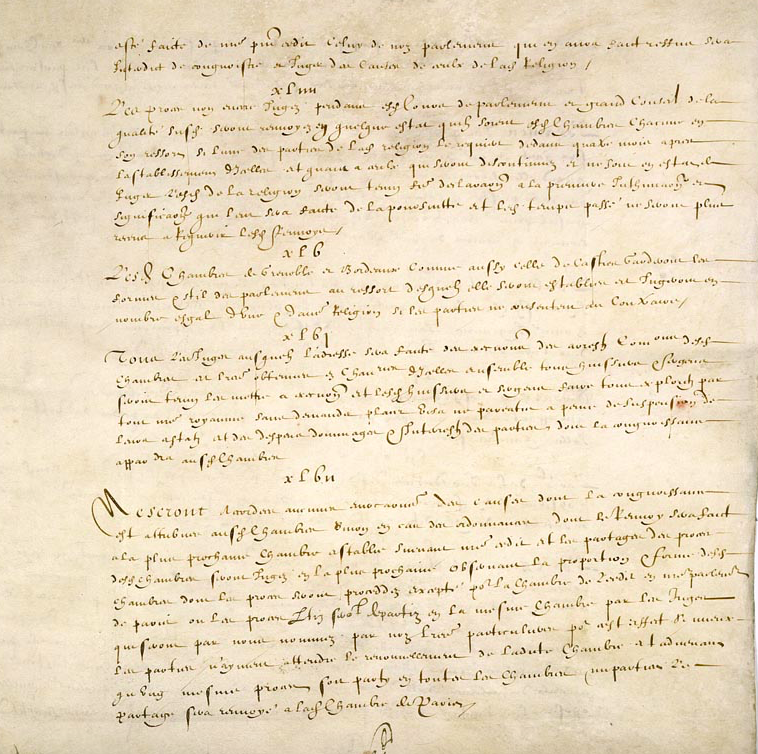 esté faicte de nre pnt edit Celuy de noz parlemens qui en aura faict reffus sera
Interdict de congnoistre et Juger des Causes de ceulx de lad Religion /
xLiiii
Les proces non encore Jugez pendans esd Cours de parlement et grand Conseil de la
qualité susd seront renvoyez en quelque estat quilz soient esd Chambres Chacune en
son ressort si lune des parties de lad religion le requiert dedans quatre mois apres
Lestablissement dIcelles et quant a ceulx qui seront discontinuez et ne sont en estat de
Juger Lesd de la religion seront tenuz faire declaraon a la premiere Inthimaon et
signification qui leur sera faicte de la poursuitte et led temps passé ne seront plus
receuz a Requerir Lesd Renvoys /
xLb
Lesd Chambres de Grenoble et Bordeaux Comme aussy celle de Castres Garderont les
formes & stil des parlemens au ressort desquelz elles seront establies et Jugeront en
nombre esgal dune & dautre Religion si les parties ne consentent au Contraire /
xLbj
Tous Les Juges ausquelz Ladresse sera faicte des execuons des arrestz Commons desd
Chambres et lres obtenues es Chancres dIcelles ensemble tous huissiers & sergens
seront tenuz les mettre a execuon et lesd huissiers et sergens faire tous exploictz par
tout nre royaume sans demander placet visa ne pareatis a peine de suspension de
leurs estatz et des despens dommages & Interestz des parties dont la congnoissance
appartiendra ausd Chambres
xLbii
Ne seront Accordees aucunes evocaons des causes dont la congnoissance
est attribuee ausd Chambres Sinon es cas des ordonnances dont le Renvoy sera faict
a la plus prochaine Chambre establie suivant nre edit et les partages des proces
desd Chambres seront Jugez en la plus prochaine Observant la proportion & forme desd
Chambres dont les proces seront proceddez excepté pour la Chambre de Ledit en nre parlemt
de paris ou les proces seront departiz en la mesme Chambre par les Juges
qui seront par nous nommez par noz lres particulieres pour cest effet Si mieux
les parties n'ayment attendre le renouvellement de ladite Chambre et advenant
qu'ung mesme proces soit party en toutes les Chambres miparties Le
partage sera renvoyé a lad Chambre de Paris /